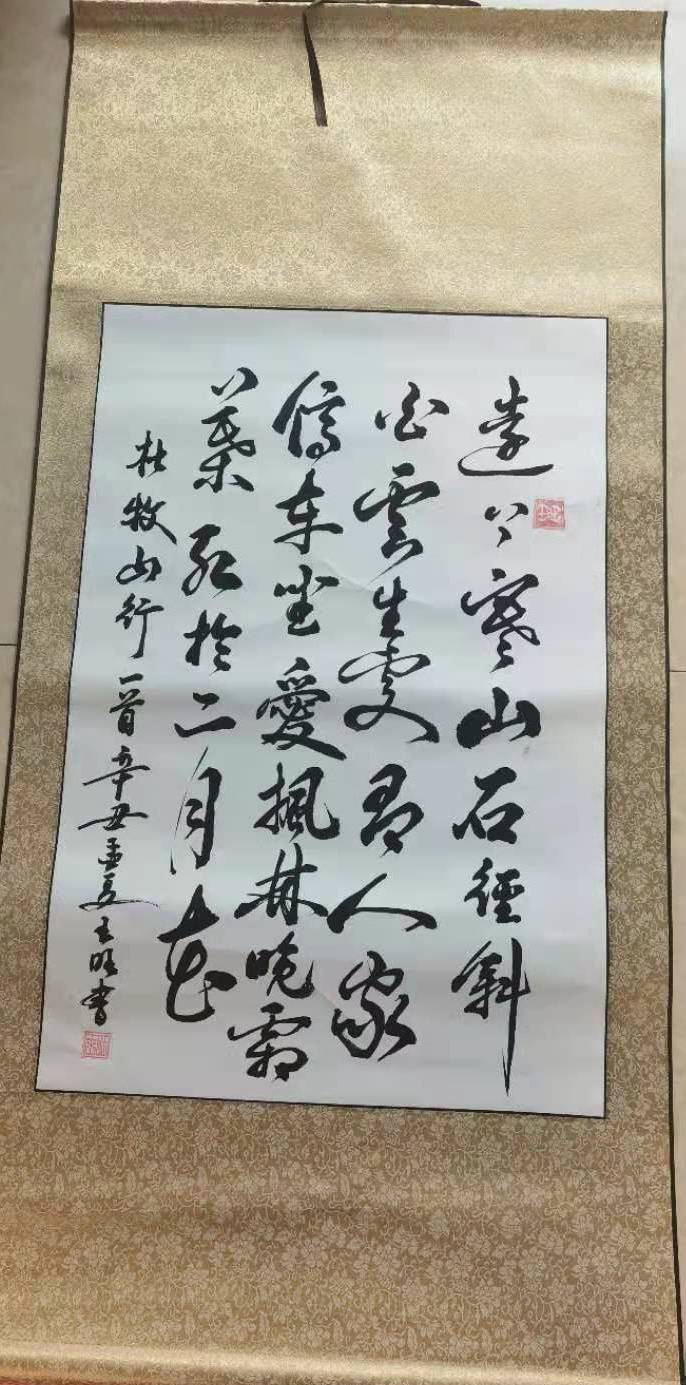 遠上寒山石徑斜
白雲生處有人家
停车坐愛楓林晚霜
葉紅於二月花
杜牧山行一首辛丑孟夏王書